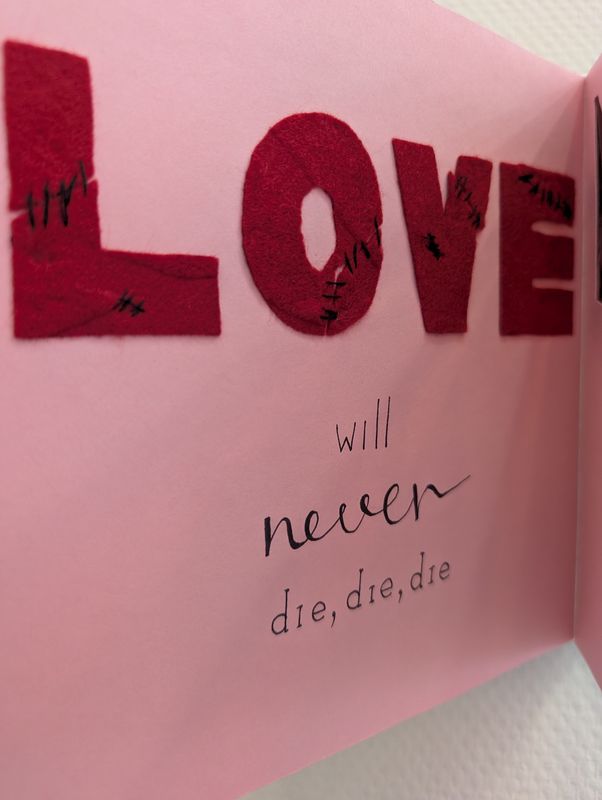 LOVE
will
never
die, die, die